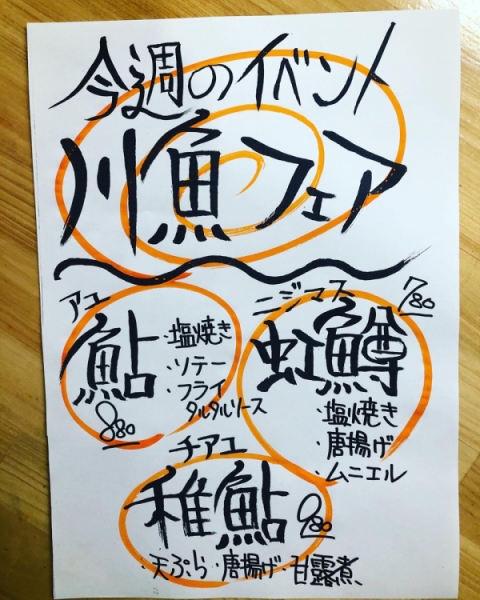 今週のイベント
川魚フェア
アユ
鮎
・塩焼き
・ソテー
・フライ
タルタルソース
880
ニジマス
780
虹鱒
・塩焼き
・唐揚げ
・ムニエル
チアユ
稚鮎
980
・天ぷら・唐揚げ・甘露煮